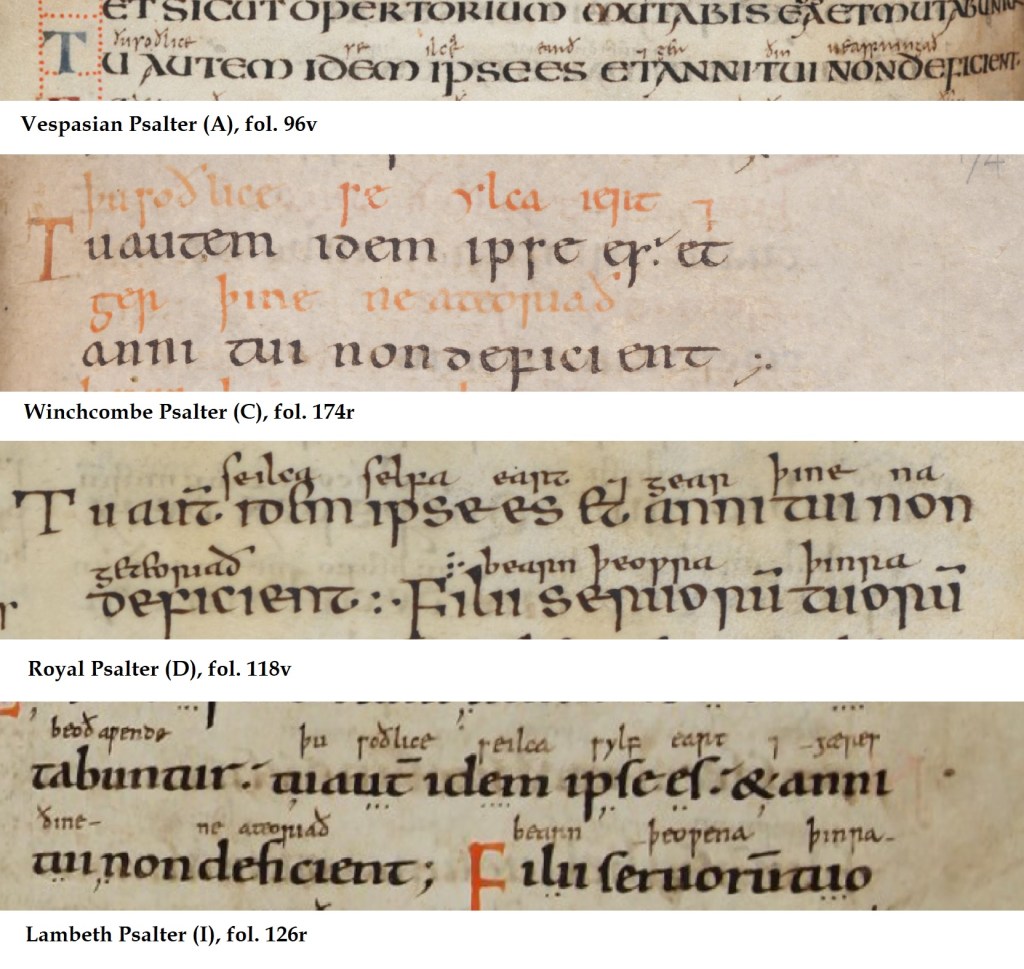 ET SICUT OPERTORIUM MUTABIS EA ET
ðu soðlice se ilca earð 7 ger ðin
TU AUTEM IDEM IPSE ES ET ANNI TUI NON DEFICIENT
Vespasian Psalter (A), fol. 96v
þu soðlice se ylca 7
Tu autem idem ipse es: et
ger þine ne ateoriað
anni tui non deficient ;.
Winchcombe Psalter (C), fol. 174r
174
seilca selfa eart 7 gear þine na
Tu aut̄ idem ipse es Et anni tui non
geteoriað bearn þeowra þinra
deficient :· Filii seruorū tuorū
Royal Psalter (D), fol. 118v
beoð awende þu soðlice seilca sylf eart 7
tabuntur. tu aut̄ idem ipse es. & anni
ðine ne ateoriað bearn þeowena þinra
tui non deficient; Filii seruorū tuo
Lambeth Psalter (I), fol. 126r